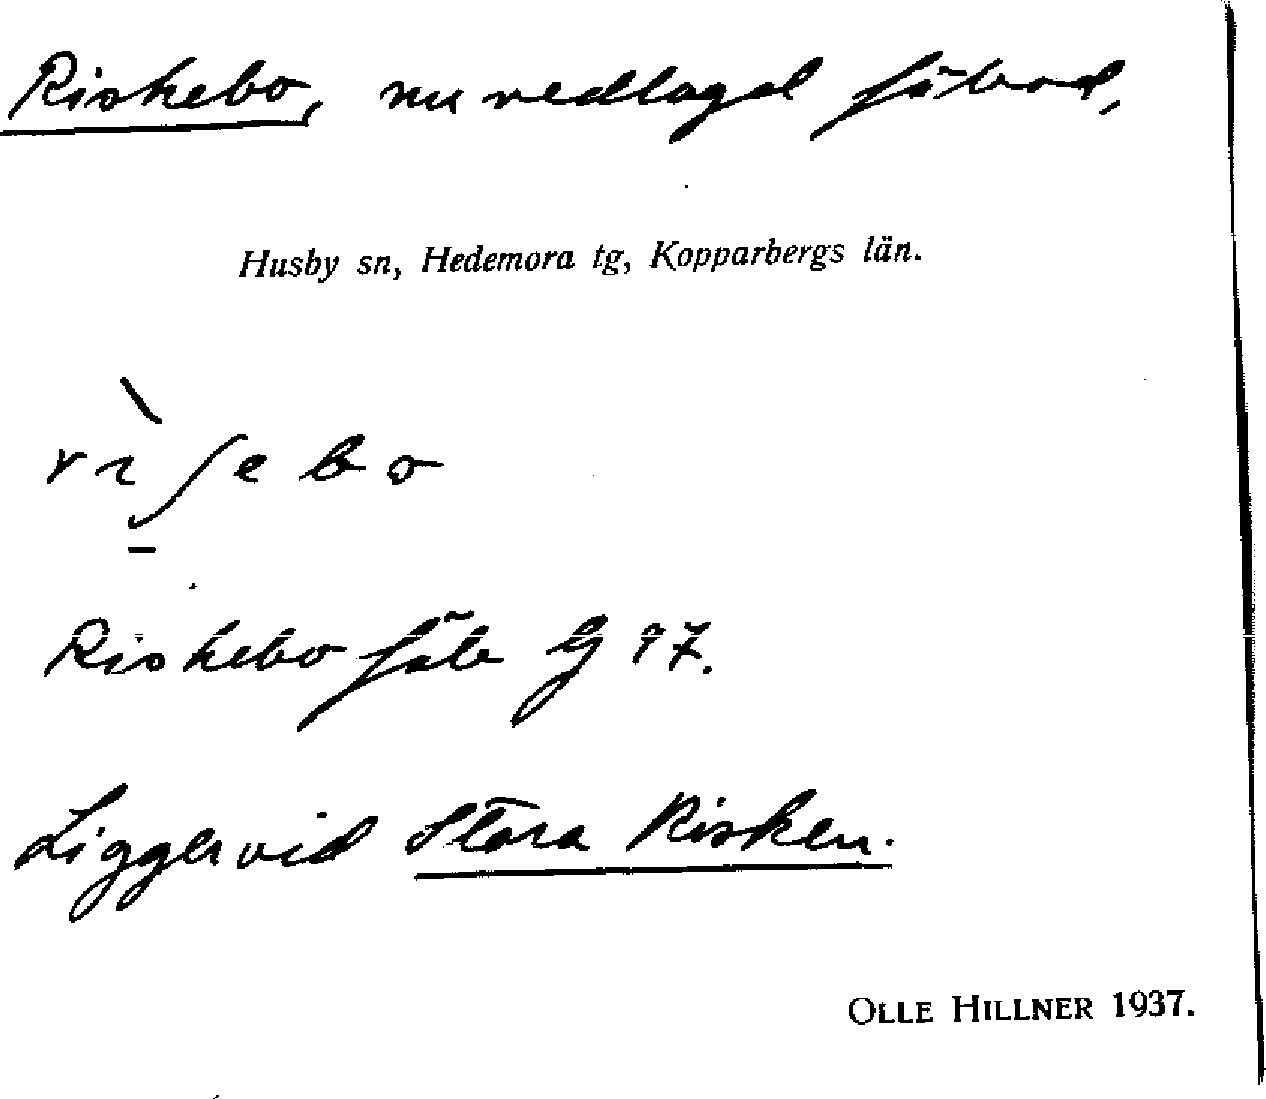 Riskebo, nu nedlagd fäbod,
Husby sn, Hedemora tg, Kopparbergs län.
rı̀ʃebo
Riskebo fäb G 97.
Ligger vid Stora Risken.
OLLE HILLNER 1937.